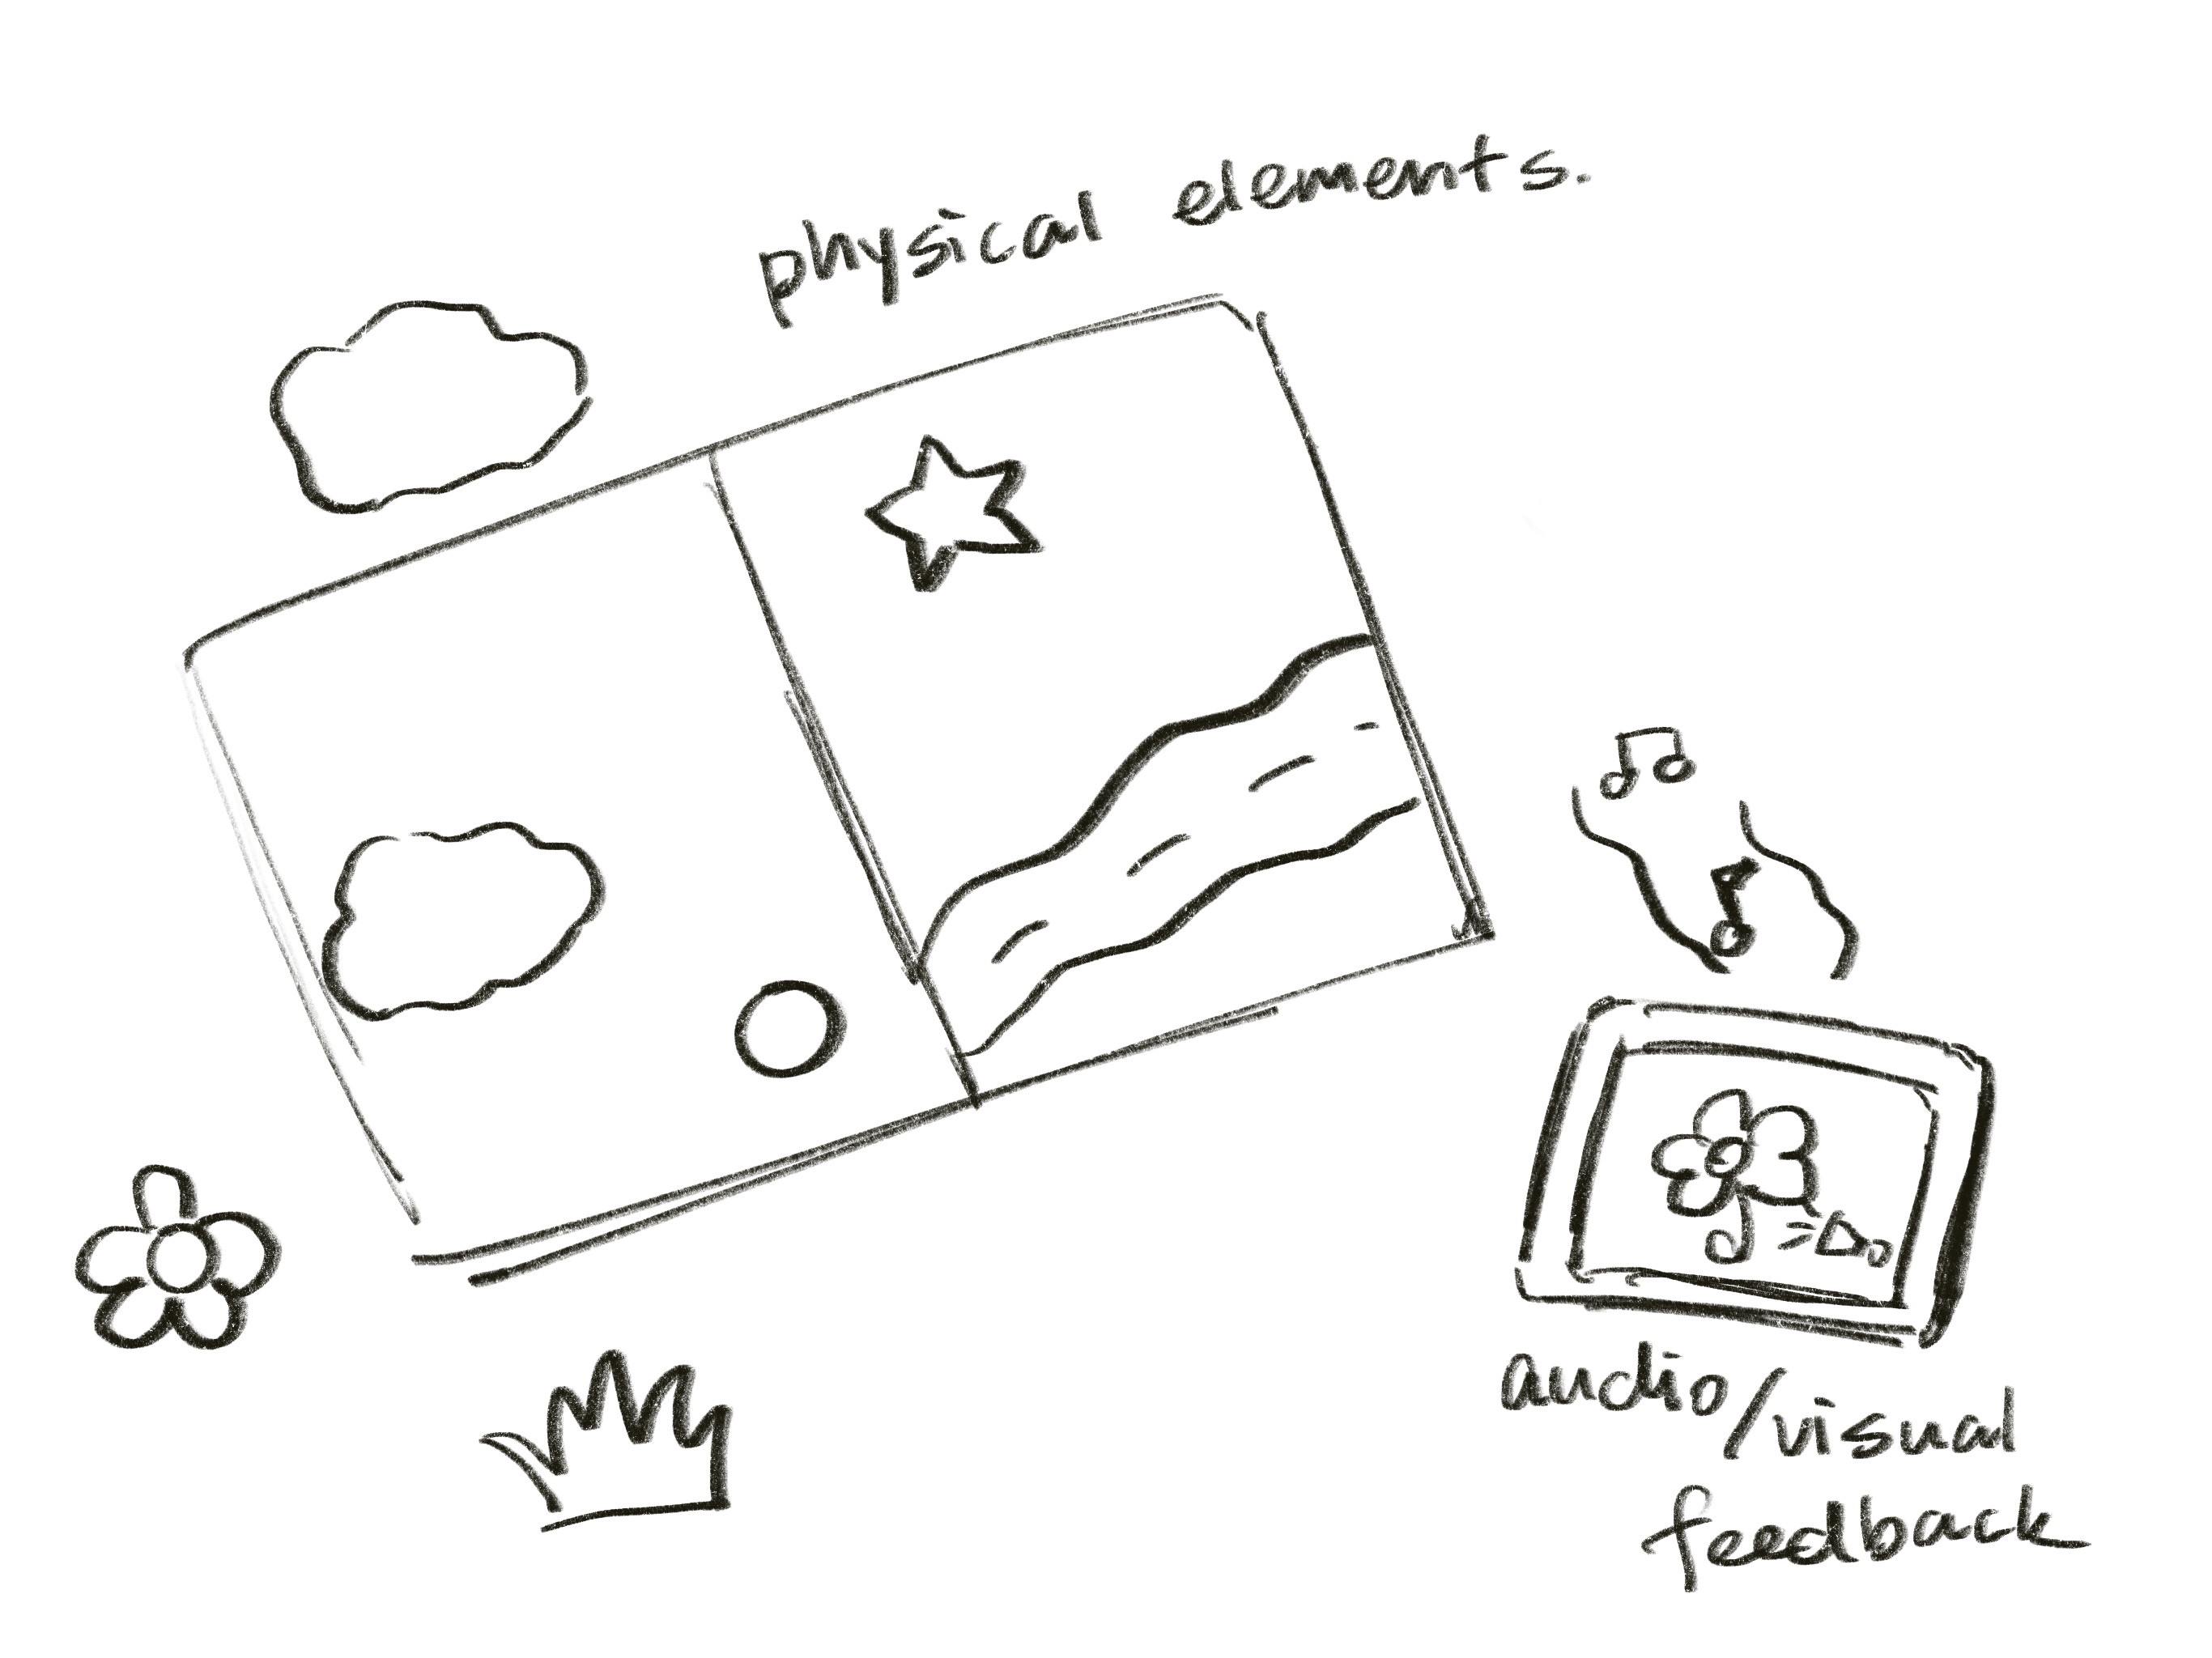 physical elements.
audio/visual
feedback